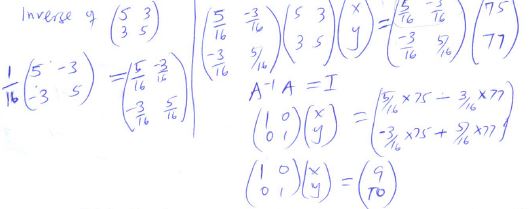 Inverse of (5 3
3 5)
1/16 (5 -3
-3 5) = (5/16 -3/16
-3/16 5/16)
(5/16 -3/16
-3/16 5/16) (5 3
3 5) (x
y) = (5/16 -3/16
-3/16 5/16) (75
77)
A⁻¹ A = I
(1 0
0 1) (x
y) = (5/16 × 75 - 3/16 × 77
-3/16 × 75 + 5/16 × 77)
(1 0
0 1) (x
y) = (9
10)